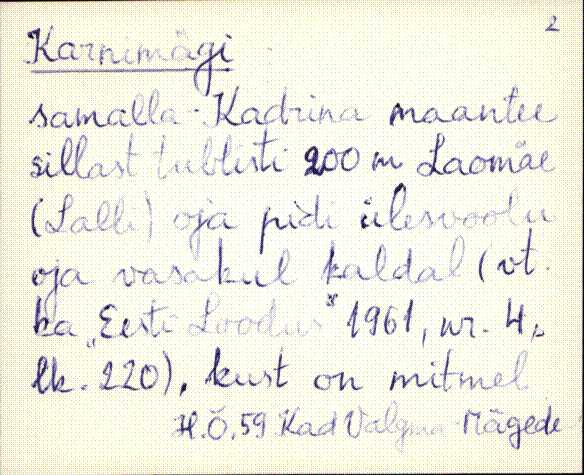 2
Karnimägi
samalla-Kadrina maantee
sillast tublisti 200 m Laomäe
(Lalli) oja pidi ülesvoolu
oja vasakul kaldal (vt.
ka „Eesti Loodus" 1961, nr. 4,
lk. 220), kust on mitmel
H.Õ. 59 Kad Valgma Mägede